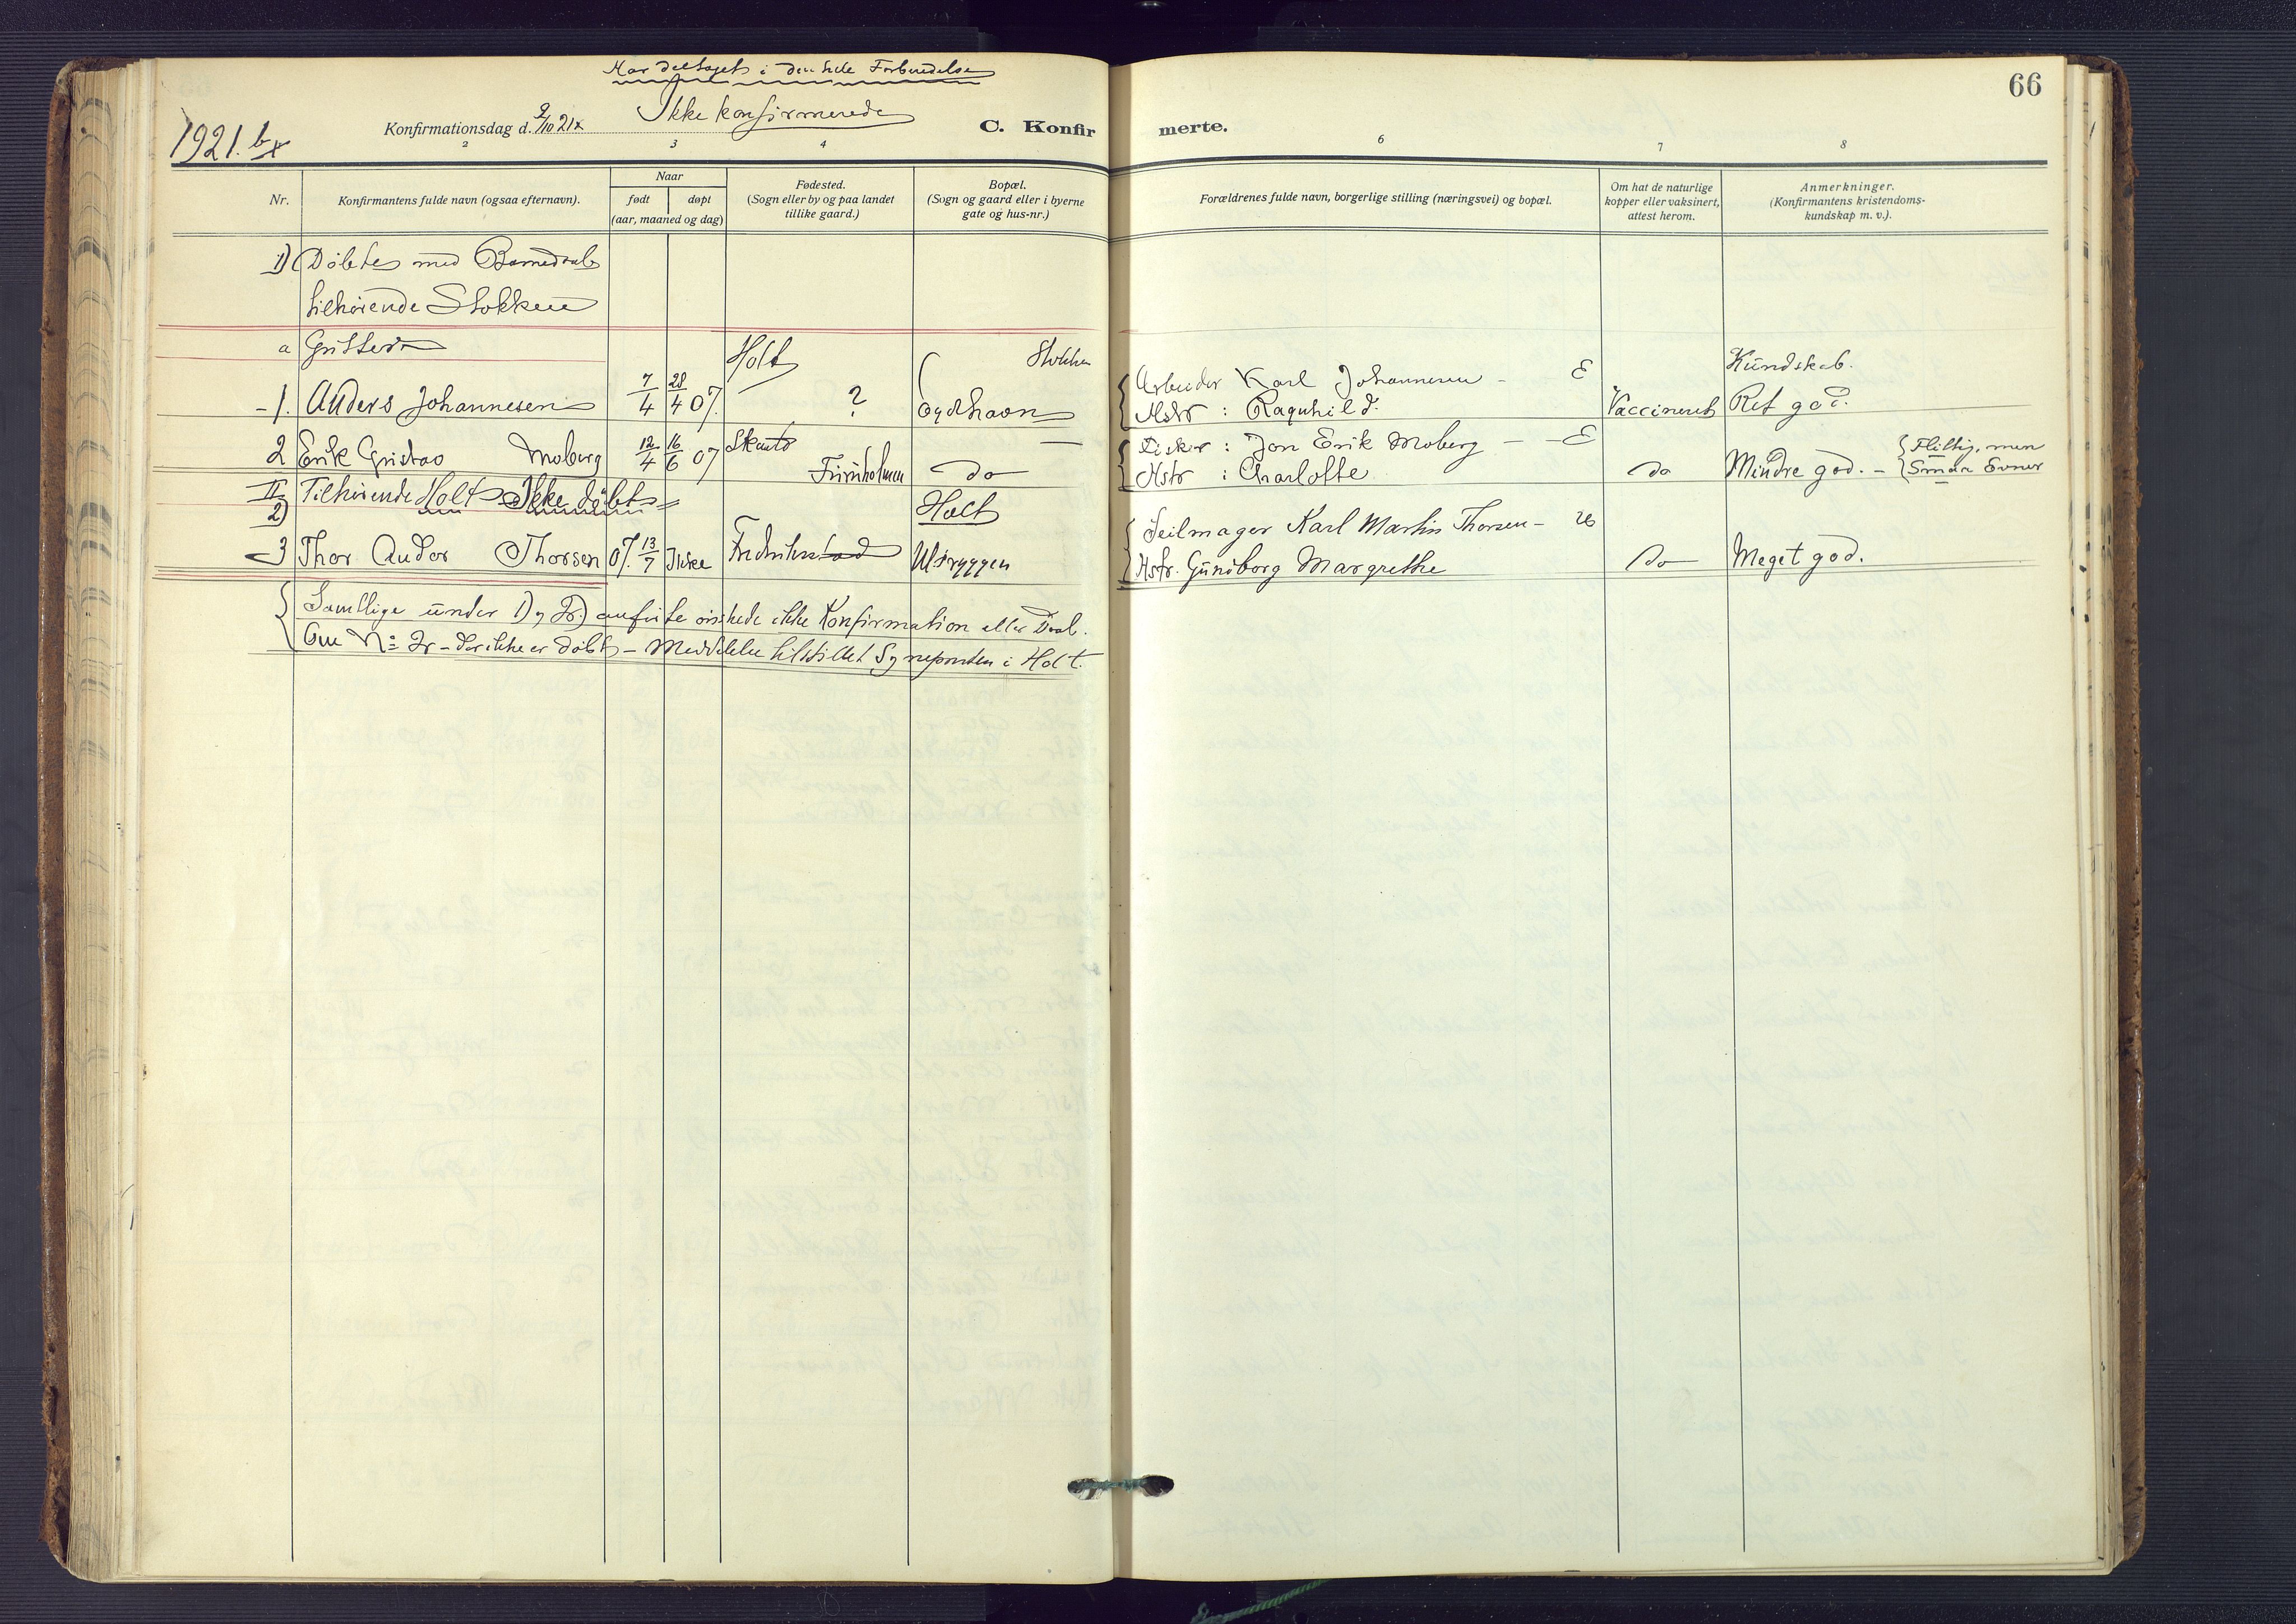 Har deltaget i den hele Forberedelse
Ikke konfirmerede
66
1921. b
Konfirmationsdag d. 2/10 21
C. Konfir
merte.
2 3 4 6 7 8
Nr.
Konfirmantens fulde navn (ogsaa efternavn).
Naar
født døpt
(aar, maaned og dag)
Fødested.
(Sogn eller by og paa landet
tillike gaard.)
Bopæl.
(Sogn og gaard eller i byerne
gate og hus-nr.)
Forældrenes fulde navn, borgerlige stilling (næringsvei) og bopæl.
Om hat de naturlige
kopper eller vaksinert,
attest herom.
Anmerkninger.
(Konfirmantens kristendoms-
kundskap m. v.).
1) Døbte med Barnedaab
tilhørende Stokken
a Gutter
Holt Stokken
Kundskab.
1. Anders Johannesen 7/4 28/4 07. ? Arbeider Karl Johannesen - E
Hstr : Ragnhild. Vaccineret Ret god.
2 Erik Gustav Moberg 12/4 16/6 07 Skaatø
do
Fisker : Jon Erik Moberg - E
Hstr : Charlotte do Mindre god. - Flittig, men
Smaa Evner
II
2) Tilhørende Holt - Ikke døbt
Holt
3 Thor Andor Thorsen 07. 13/7 Ikke Fredrikstad
Seilmager Karl Martin Thorsen -
Hstr. Gunborg Margrethe do Meget god.
Samtlige under 1) og 2) anførte ønskede ikke Konfirmation eller Daab.
Om No 2 - der ikke er døbt - Meddelelse tilstillet Sogneprsten i Holt.